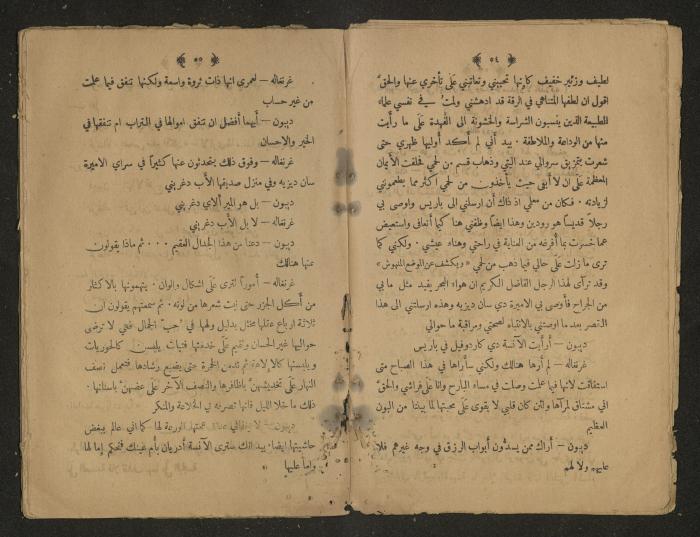 ﴿ ٥٤ ﴾
لطيف وزئير خفيف كانها تحييني وتعاتبني على تأخري عنها والحق
اقول ان لطفها المتناهي في الرقة قد ادهشني ولمت في نفسي علماء
الطبيعة الذين ينسبون الشراسة والخشونة الى الفهدة على ما رأيت
منها من الوداعة والملاطفة . بيد أني لم أكد أوليها ظهري حتى
شعرت بتمزيق سروالي عند اليتي وذهاب قسم من لحمي فحلفت الأيمان
المعظمة على ان لا أبقى حيث يأخذون من لحمي اكثر مما يطعمونني
لزيادته . فكان من معلمي اذ ذاك أن ارسلني الى باريس واوصى بي
رجلاً قديساً هو رودين وهذا ايضاً وظفني هنا كيما أتعافى واستعيض
عما خسرت بما أفرغه من العناية في راحتي وهناء عيشي . ولكني كما
ترى ما زلت على حالي فيما ذهب من لحمي « ويكشف عن الموضع المنهوش »
وقد ترآى لهذا الرجل الفاضل الكريم ان هواء البحر يفيد مثل ما بي
من الجراح فأوصى بي الاميرة دي سان ديزيه وهذه ارسلتني الى هذا
القصر بعد ما اوصتني بالانتباه لصحتي ومراقبة ما حوالي
ديبون – أرأيت الآنسة دي كاردوفيل في باريس
غرنفاله – لم أرها هنالك ولكني سأراها في هذا الصباح متى
استفاقت لانها فيما علمت وصلت في مساء البارح وانا على فراشي والحق
اني مشتاق لمرآها ولئن كان قلبي لا يقوى على محبتها لما بيننا من البون
العظيم
ديبون – أراك ممن يسدون أبواب الرزق في وجه غيرهم فلا
عليهم ولا لهم
﴿ ٥٥ ﴾
غرنفاله – لعمري انها ذات ثروة واسعة ولكنها تنفق فيما علمت
من غير حساب
ديبون – أيهما أفضل ان تنفق اموالها في التراب ام تنفقها في
الخير والاحسان
غرنفاله – وفوق ذلك يتحدثون عنها كثيراً في سراي الاميرة
سان ديزيه وفي منزل صديقها الأب دغريني
ديبون – بل هو المير ألاي دغريني
غرنفاله – لا بل الأب دغريني
ديبون – دعنا من هذا الجدال العقيم . . . ثم ماذا يقولون
عنها هنالك
غرنفاله – أموراً تفترى على أشكال والوان . يتهمونها بالاكثار
من أكل الجزر حتى نبت شعرها من لونه . ثم سمعتهم يقولون ان
ثلاثة ارباع عقلها مختل بدليل ولهها في حب الجمال فهي لا ترضى
حواليها غير الحسان وتقيم على خدمتها فتيات يلبسن كالحوريات
ويلبستها كالالاهة ثم تدمن الخمرة حتى يضيع رشادها فتعمل نصف
النهار على تخديشهن باظافرها والنصف الآخر على عضهن باسنانها .
ذلك ما خلا الليل فانها تصرفه في الخلاعة والمنكر
ديبون – لا يخفاني عمتها الورعة لها كما اني عالم ببغض
حاشيتها ايضاً . بيد انك سترى الآنسة أدريان بأم عينك فتحكم إما لها
وإما عليها